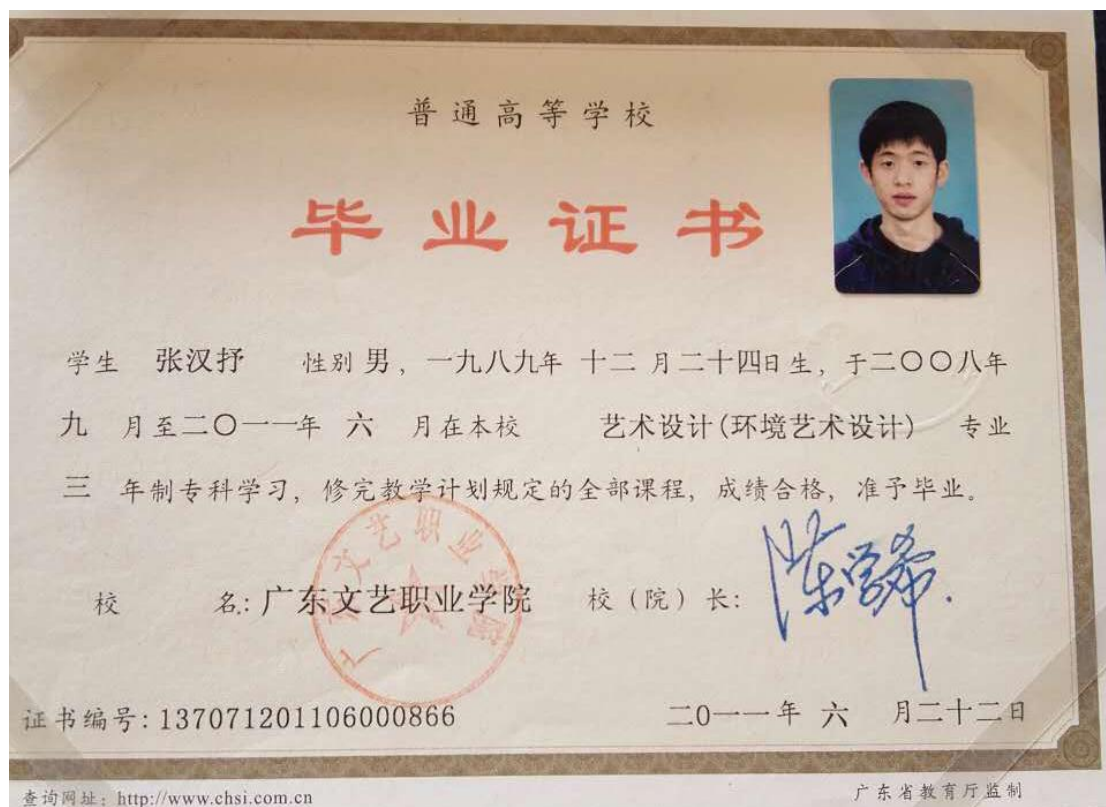 普通高等学校
毕业证书
学生 张汉抒 性别 男, 一九八九年 十二 月二十四日生, 于二〇〇八年
九 月至二〇一一年 六 月在本校 艺术设计(环境艺术设计) 专业
三 年制专科学习, 修完教学计划规定的全部课程, 成绩合格, 准予毕业。
广东文艺职业学院
校 名: 广东文艺职业学院 校（院）长: 陈学希
证书编号: 137071201106000866 二0一一年 六 月二十二日
查询网址: http://www.chsi.com.cn 广东省教育厅监制